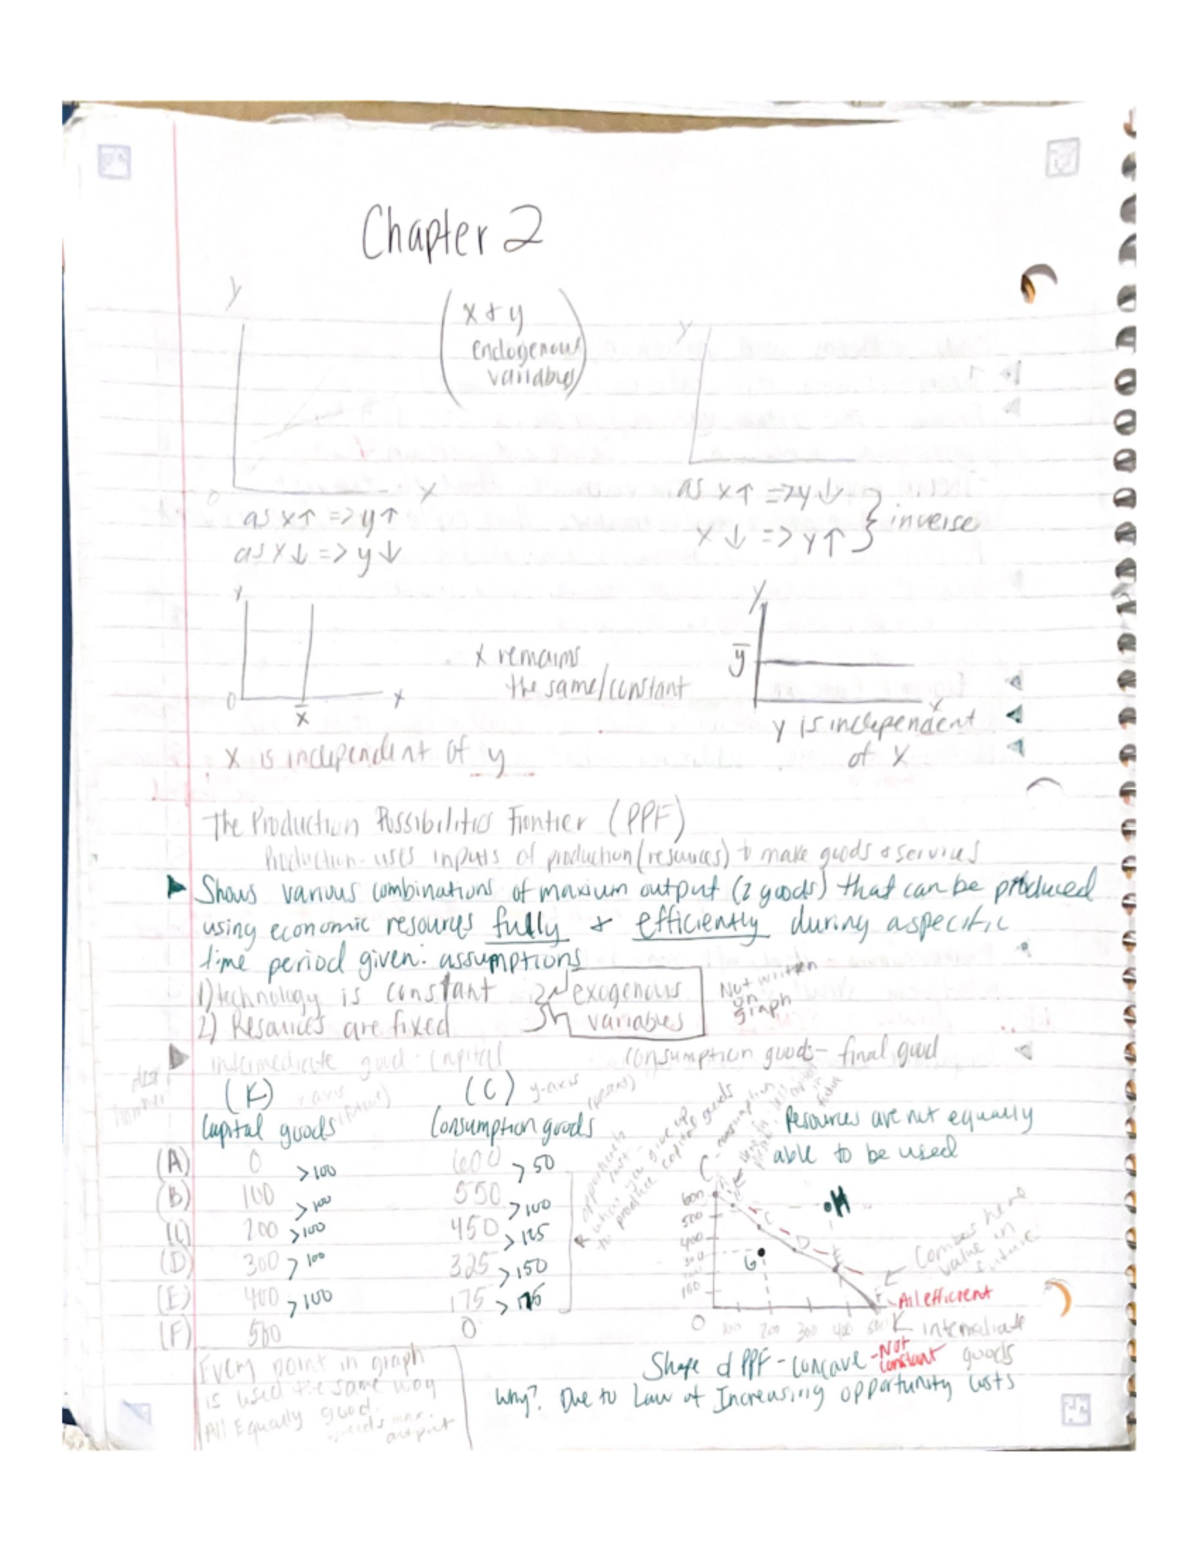 Chapter 2
y
(x & y
endogenous
variables)
y
0
x
as x↑ => y↑
as x↓ => y↓
as x↑ => y↓
x↓ => y↑
} inverse
y
0
x̄
x
x remains
the same/constant
x is independent of y
y
ȳ
x
y is independent
of x
The Production Possibilities Frontier (PPF)
Production - uses inputs of production (resources) to make goods & services
Shows various combinations of maxium output (2 goods) that can be produced
using economic resources fully & efficiently during a specific
time period given: assumptions
1) technology is constant
2) Resources are fixed
exogenous
variables
Not written
on
graph
intermediate good - capital
consumption goods - final good
(K) x axis
Capital goods (future)
(C) y-axis
Consumption goods
(A) 0 >100 600 >50
(B) 100 >100 550 >100
(C) 200 >100 450 >125
(D) 300 >100 325 >150
(E) 400 >100 175 >175
(F) 500 0
opportunity
cost -
what you give up
to produce capital goods
Resources are not equally
able to be used
C - consumption
600
500
400
300
100
0
100 200 300 400 500
C
D
E
F
G
H
K intermediate
goods
Comes here
value in
future
All efficient
Shape of PPF - concave - Not
constant
Why? Due to Law of Increasing opportunity costs
Every point in graph
is used the same way
All Equally good.
yields max.
output